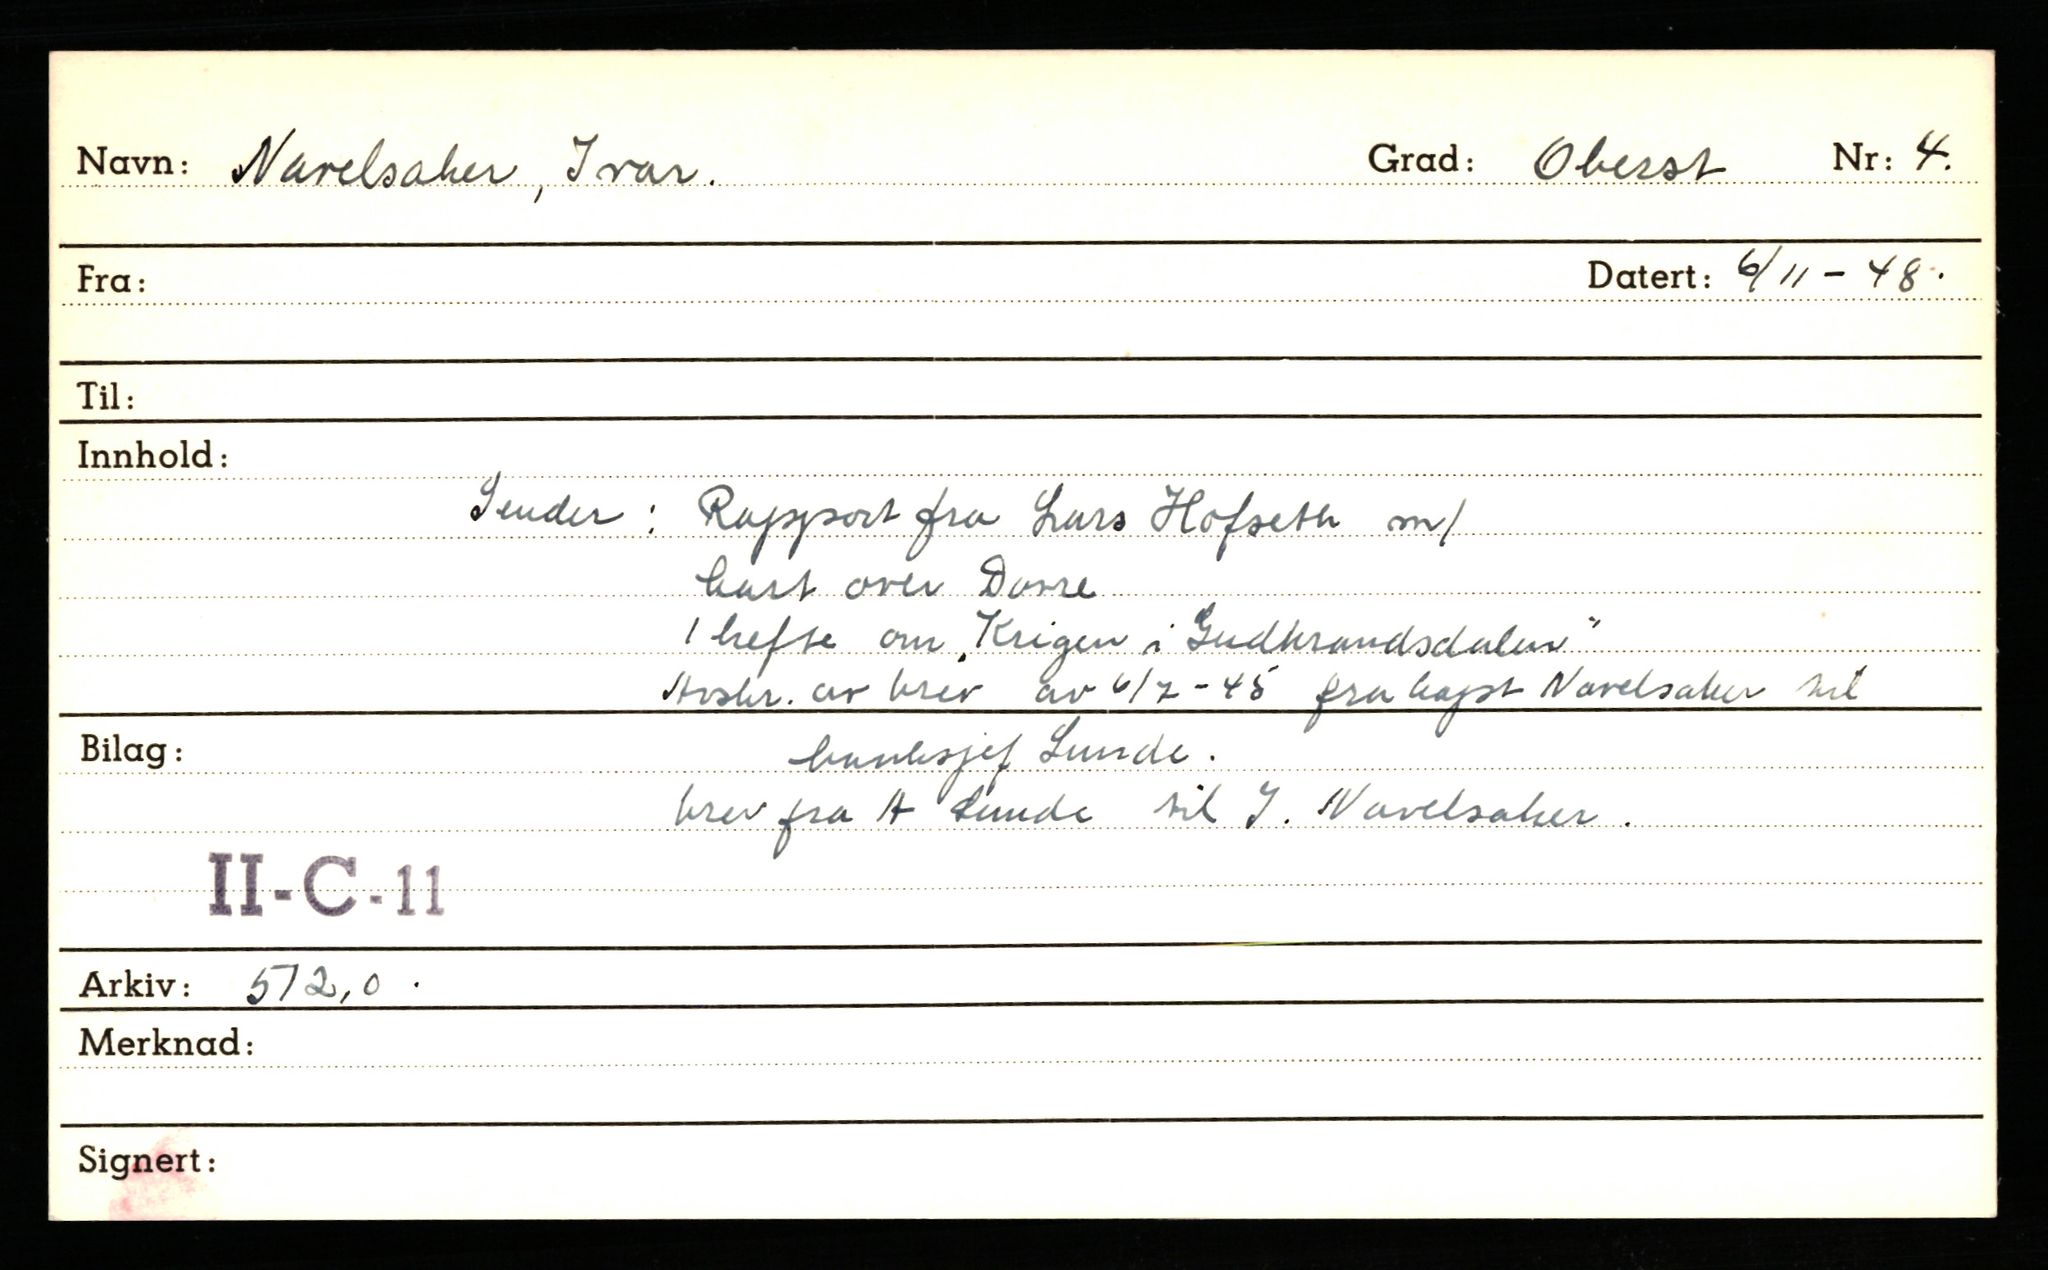 Navn: Navelsaker, Ivar. Grad: Oberst Nr: 4.
Fra: Datert: 6/11-48.
Til:
Innhold:
Sender: Rapport fra Lars Hofseth m/
kart over Dovre
1 hefte om „Krigen i Gudbrandsdalen"
Avskr. av brev av 6/7-45 fra kapt Navelsaker til
Bilag: banksjef Lunde.
brev fra A Lunde til I. Navelsaker.
II-C-11
Arkiv: 572,0.
Merknad:
Signert: